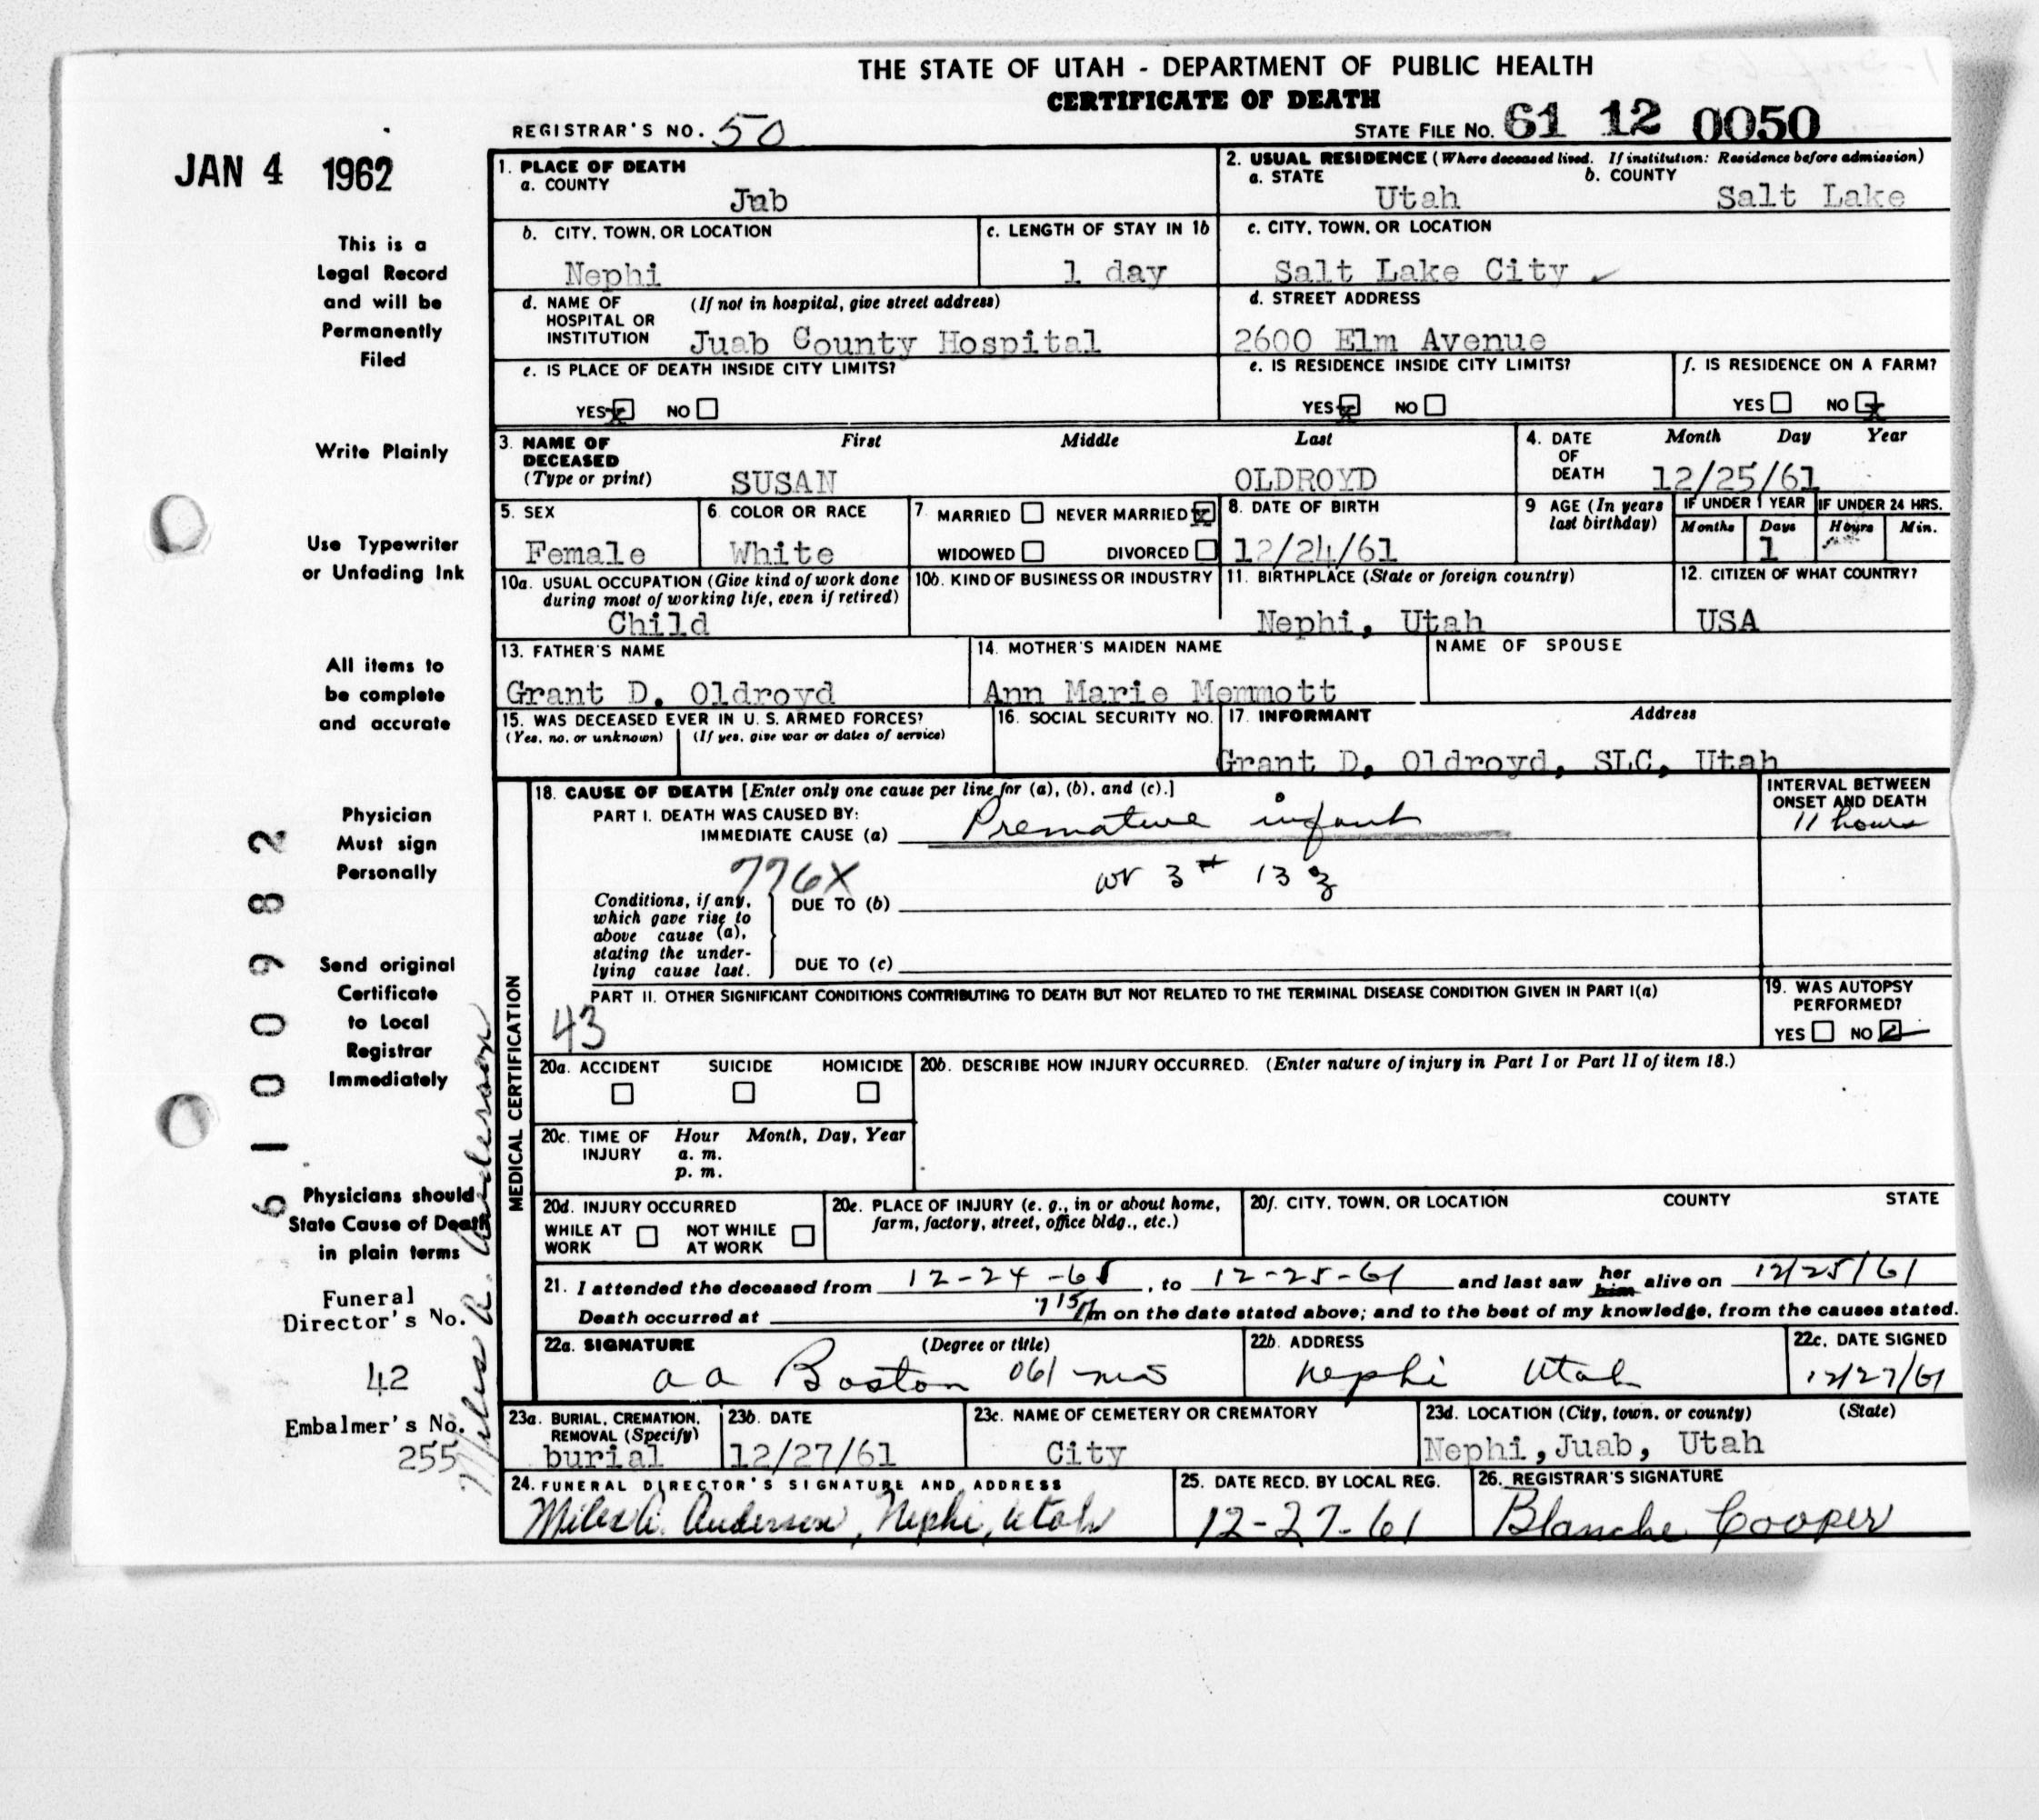 THE STATE OF UTAH - DEPARTMENT OF PUBLIC HEALTH
CERTIFICATE OF DEATH
REGISTRAR'S NO. 50
STATE FILE NO. 61 12 0050
JAN 4 1962
1. PLACE OF DEATH
a. COUNTY
Jub
2. USUAL RESIDENCE (Where deceased lived. If institution: Residence before admission)
a. STATE
b. COUNTY
Utah
Salt Lake
b. CITY, TOWN, OR LOCATION
Nephi
c. LENGTH OF STAY IN 1b
1 day
c. CITY, TOWN, OR LOCATION
Salt Lake City
d. NAME OF HOSPITAL OR INSTITUTION
(If not in hospital, give street address)
Juab County Hospital
d. STREET ADDRESS
2600 Elm Avenue
e. IS PLACE OF DEATH INSIDE CITY LIMITS?
YES x NO
e. IS RESIDENCE INSIDE CITY LIMITS?
YES x NO
f. IS RESIDENCE ON A FARM?
YES NO x
3. NAME OF DECEASED
(Type or print)
First Middle Last
SUSAN OLDROYD
4. DATE OF DEATH
Month Day Year
12/25/61
5. SEX
Female
6. COLOR OR RACE
White
7. MARRIED NEVER MARRIED x
WIDOWED DIVORCED
8. DATE OF BIRTH
12/24/61
9 AGE (In years last birthday)
IF UNDER 1 YEAR
Months Days
1
IF UNDER 24 HRS.
Hours Min.
10a. USUAL OCCUPATION (Give kind of work done during most of working life, even if retired)
Child
10b. KIND OF BUSINESS OR INDUSTRY
11. BIRTHPLACE (State or foreign country)
Nephi, Utah
12. CITIZEN OF WHAT COUNTRY?
USA
13. FATHER'S NAME
Grant D. Oldroyd
14. MOTHER'S MAIDEN NAME
Ann Marie Memmott
NAME OF SPOUSE
15. WAS DECEASED EVER IN U. S. ARMED FORCES?
(Yes, no, or unknown) (If yes, give war or dates of service)
16. SOCIAL SECURITY NO.
17. INFORMANT Address
Grant D. Oldroyd, SLC, Utah
MEDICAL CERTIFICATION
18. CAUSE OF DEATH [Enter only one cause per line for (a), (b), and (c).]
PART I. DEATH WAS CAUSED BY:
IMMEDIATE CAUSE (a) Premature infant
INTERVAL BETWEEN ONSET AND DEATH
11 hours
776X
wt 3# 13 z
Conditions, if any, which gave rise to above cause (a), stating the underlying cause last.
DUE TO (b)
DUE TO (c)
PART II. OTHER SIGNIFICANT CONDITIONS CONTRIBUTING TO DEATH BUT NOT RELATED TO THE TERMINAL DISEASE CONDITION GIVEN IN PART I(a)
43
19. WAS AUTOPSY PERFORMED?
YES NO
20a. ACCIDENT SUICIDE HOMICIDE
20b. DESCRIBE HOW INJURY OCCURRED. (Enter nature of injury in Part I or Part II of item 18.)
20c. TIME OF INJURY
Hour Month, Day, Year
a. m.
p. m.
20d. INJURY OCCURRED
WHILE AT WORK NOT WHILE AT WORK
20e. PLACE OF INJURY (e. g., in or about home, farm, factory, street, office bldg., etc.)
20f. CITY, TOWN, OR LOCATION COUNTY STATE
21. I attended the deceased from 12-24-61, to 12-25-61 and last saw her him alive on 12/25/61
Death occurred at 7 15 m on the date stated above; and to the best of my knowledge, from the causes stated.
22a. SIGNATURE (Degree or title)
a a Boston 061 MD
22b. ADDRESS
Nephi Utah
22c. DATE SIGNED
12/27/61
23a. BURIAL, CREMATION, REMOVAL (Specify)
burial
23b. DATE
12/27/61
23c. NAME OF CEMETERY OR CREMATORY
City
23d. LOCATION (City, town, or county) (State)
Nephi, Juab, Utah
24. FUNERAL DIRECTOR'S SIGNATURE AND ADDRESS
Miles A. Anderson, Nephi, Utah
25. DATE RECD. BY LOCAL REG.
12-27-61
26. REGISTRAR'S SIGNATURE
Blanche Cooper
This is a
Legal Record
and will be
Permanently
Filed
Write Plainly
Use Typewriter
or Unfading Ink
All items to
be complete
and accurate
Physician
Must sign
Personally
Send original
Certificate
to Local
Registrar
Immediately
Physicians should
State Cause of Death
in plain terms
Funeral
Director's No.
42
Embalmer's No.
255
Miles A. Anderson
6100982